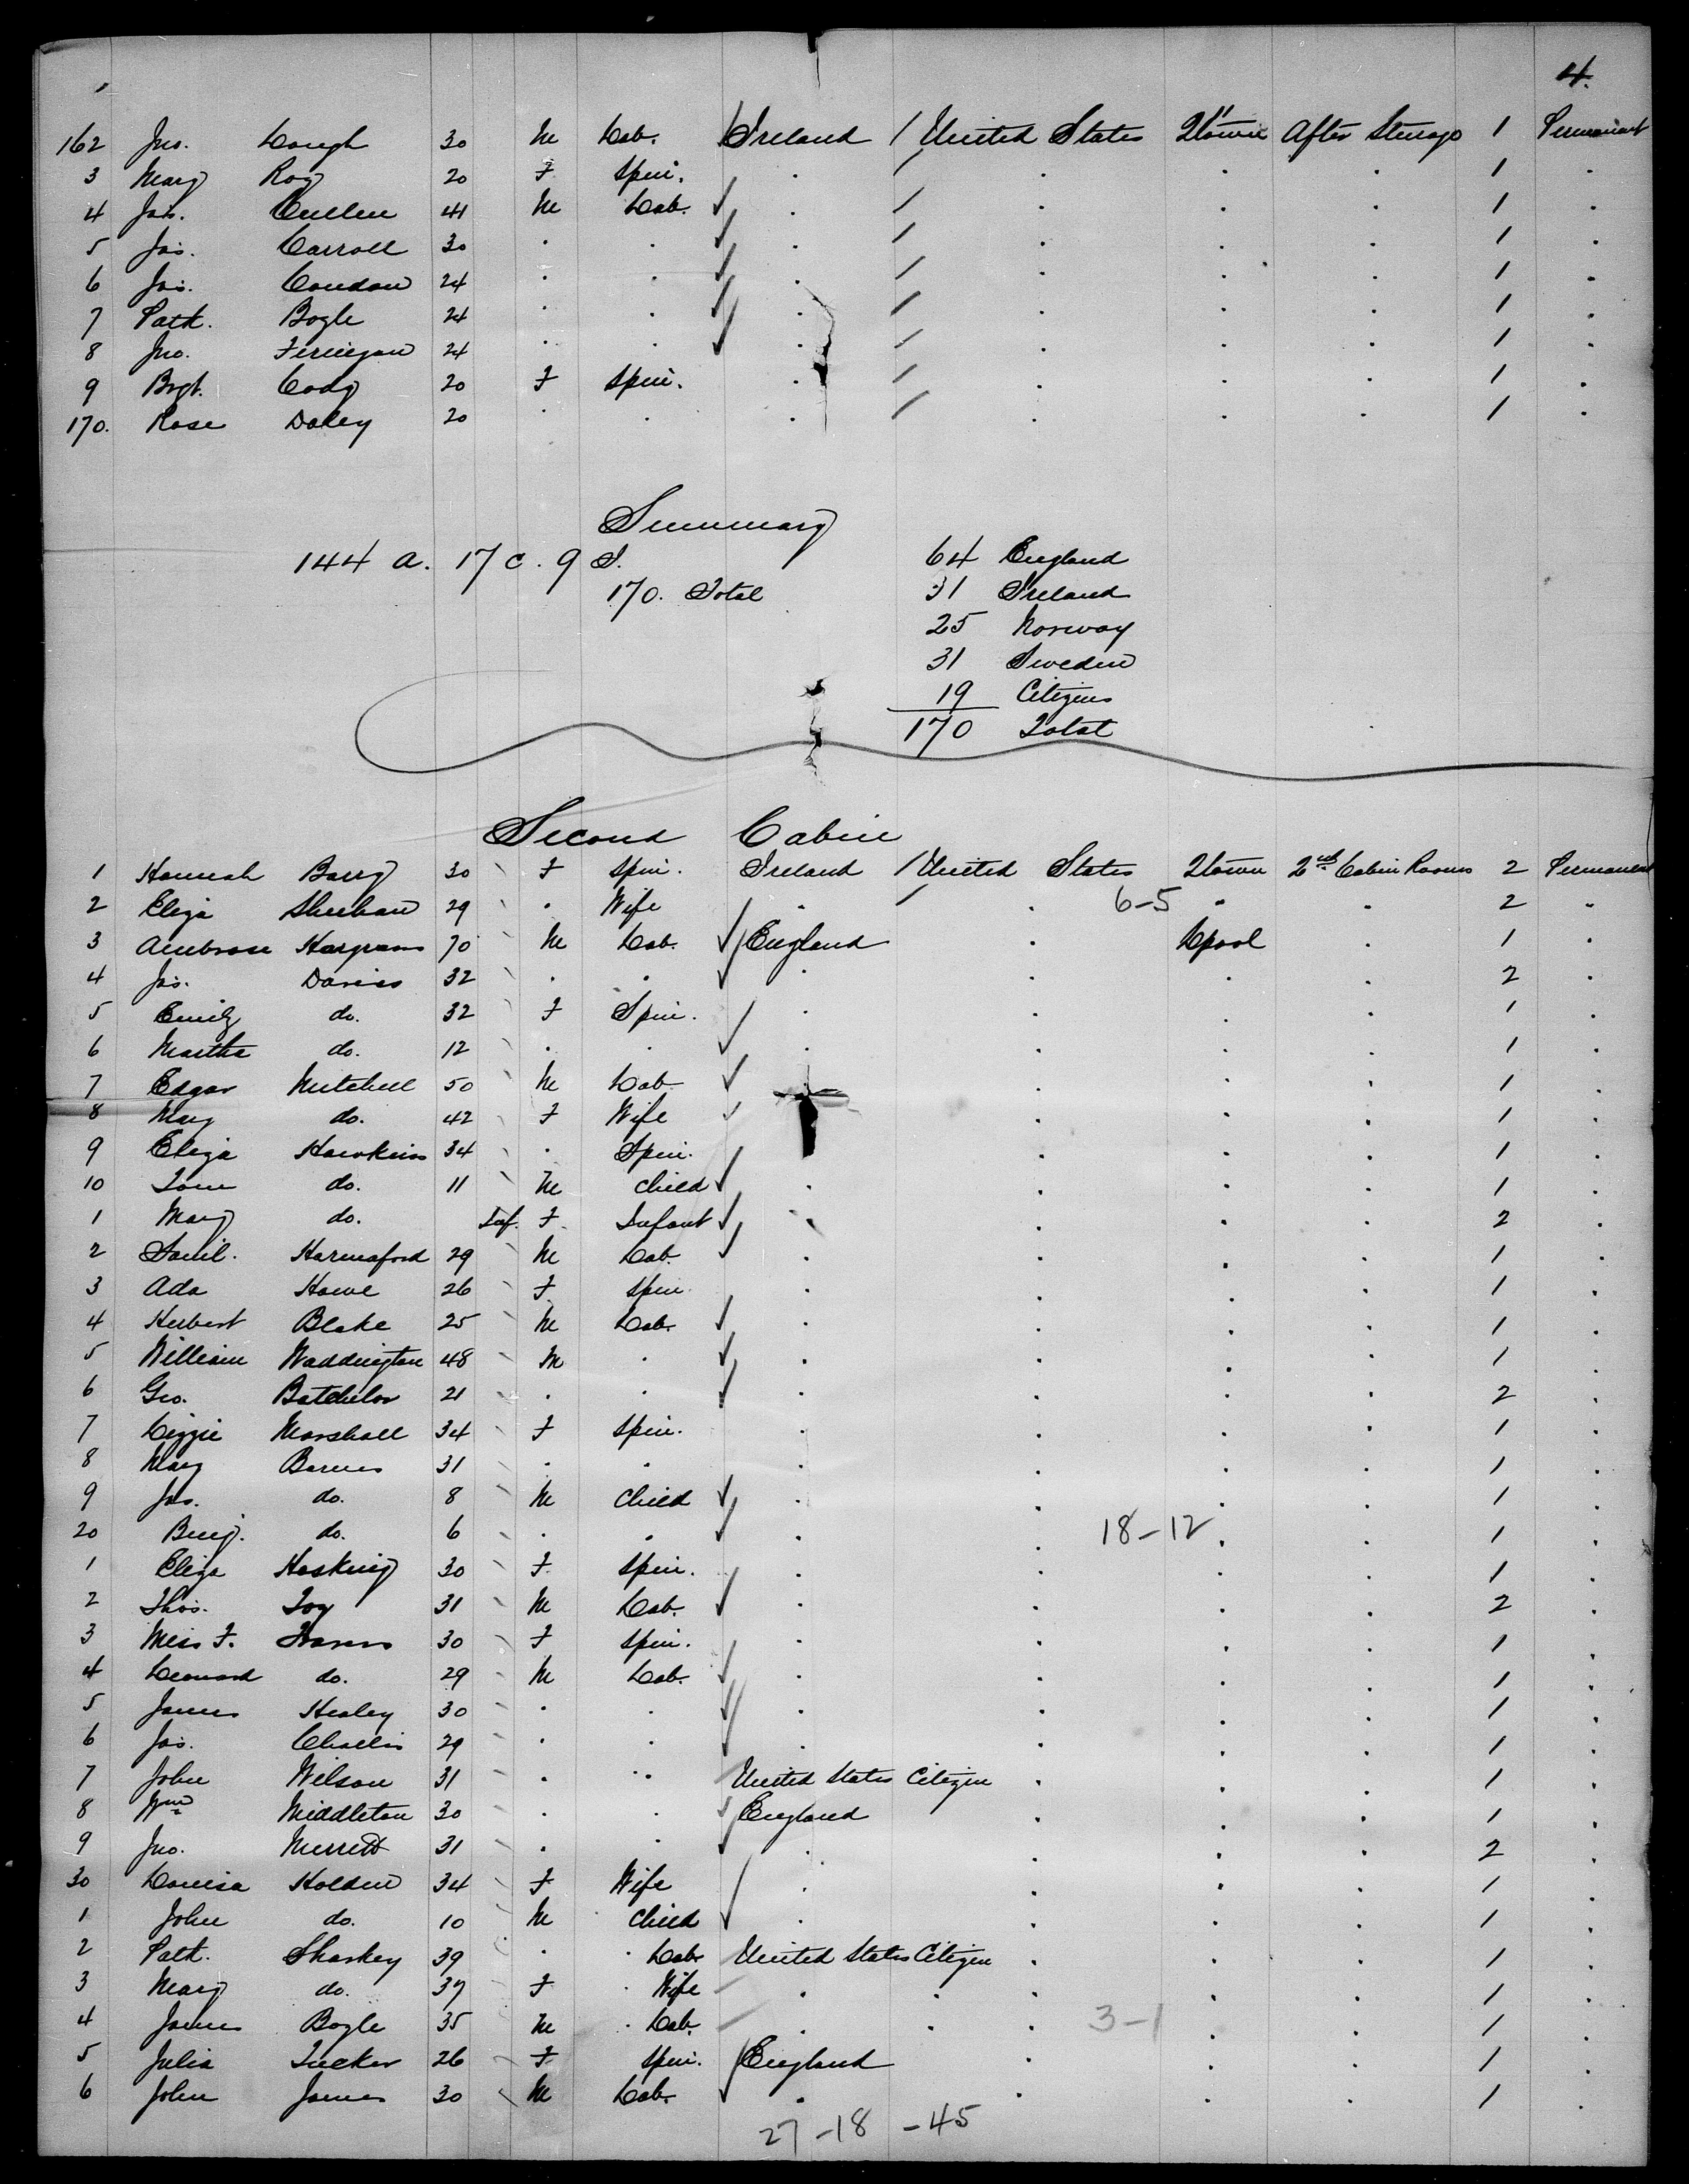 4.
162 Jno. Lough 30 M Lab. Ireland / United States Qtown After Steerage 1 Permanent
3 Mary Roy 20 F Spin. . / . . . 1 .
4 Jas. Cullen 41 M Lab. ✓ . / . . . 1 .
5 Jas. Carroll 30 . . ✓ . / . . . 1 .
6 Jas. Condon 24 . . ✓ . / . . . 1 .
7 Patk. Bogle 24 . . ✓ . / . . . 1 .
8 Jno. Finnegan 24 . . ✓ . / . . . 1 .
9 Brgt. Cody 20 F Spin. . / . . . 1 .
170. Rose Daley 20 . . . / . . . 1 .
Summary
144 A. 17 C. 9 I.
170. Total
64 England
31 Ireland
25 Norway
31 Sweden
19 Citizens
170 Total
Second Cabin
1 Hannah Barry 30 F Spin. Ireland / United States Qtown 2nd Cabin Rooms 2 Permanent
2 Eliza Sheehan 29 . Wife . / . 6-5 . . 2 .
3 Ambrose Hargreaves 70 M Lab. ✓ England . Lpool . 1 .
4 Jas. Davies 32 . . ✓ . . . . 2 .
5 Emily do. 32 F Spin. . . . . 1 .
6 Martha do. 12 . . ✓ . . . . 1 .
7 Edgar Mitchell 50 M Lab ✓ . . . 1 .
8 Mary do. 42 F Wife ✓ . . . 1 .
9 Eliza Hawkins 34 . Spin. . . . 1 .
10 Tom do. 11 M Child ✓ . . . . 1 .
1 Mary do. Inf. F Infant ✓ . . . . 2 .
2 Saml. Harmaford 29 M Lab. ✓ . . . . 1 .
3 Ada Howe 26 F Spin . . . . 1 .
4 Herbert Blake 25 M Lab. ✓ . . . . 1 .
5 William Waddington 48 M . ✓ . . . . 1 .
6 Geo. Batchelor 21 . . ✓ . . . . 2 .
7 Lizzie Marshall 34 F Spin. . . . . 1 .
8 Mary Barnes 31 . . . . . . 1 .
9 Jas. do. 8 M Child ✓ . . . . 1 .
20 Benj. do. 6 . . ✓ . . 18-12 . . 1 .
1 Eliza Hosking 30 F Spin. . . . . 1 .
2 Thos. Toy 31 M Lab. ✓ . . . . 2 .
3 Miss F. Travers 30 F Spin. . . . . 1 .
4 Leonard do. 29 M Lab. ✓ . . . . 1 .
5 James Healey 30 . . ✓ . . . . 1 .
6 Jas. Challis 29 . . ✓ . . . . 1 .
7 John Wilson 31 . . United States Citizen . . . 1 .
8 Wm Middleton 30 . . ✓ England . . . 1 .
9 Jno. Merrett 31 . . ✓ . . . . 2 .
30 Louisa Holden 34 F Wife . . . . 1 .
1 John do. 10 M Child ✓ . . . . 1 .
2 Patk. Sharkey 39 . Lab United States Citizen . . . 1 .
3 Mary do. 37 F Wife . . . . . 1 .
4 James Bogle 35 M Lab. . . . 3-1 . . 1 .
5 Julia Tucker 26 F Spin. England . . . 1 .
6 John James 30 M Lab. ✓ . . . . 1 .
27-18-45